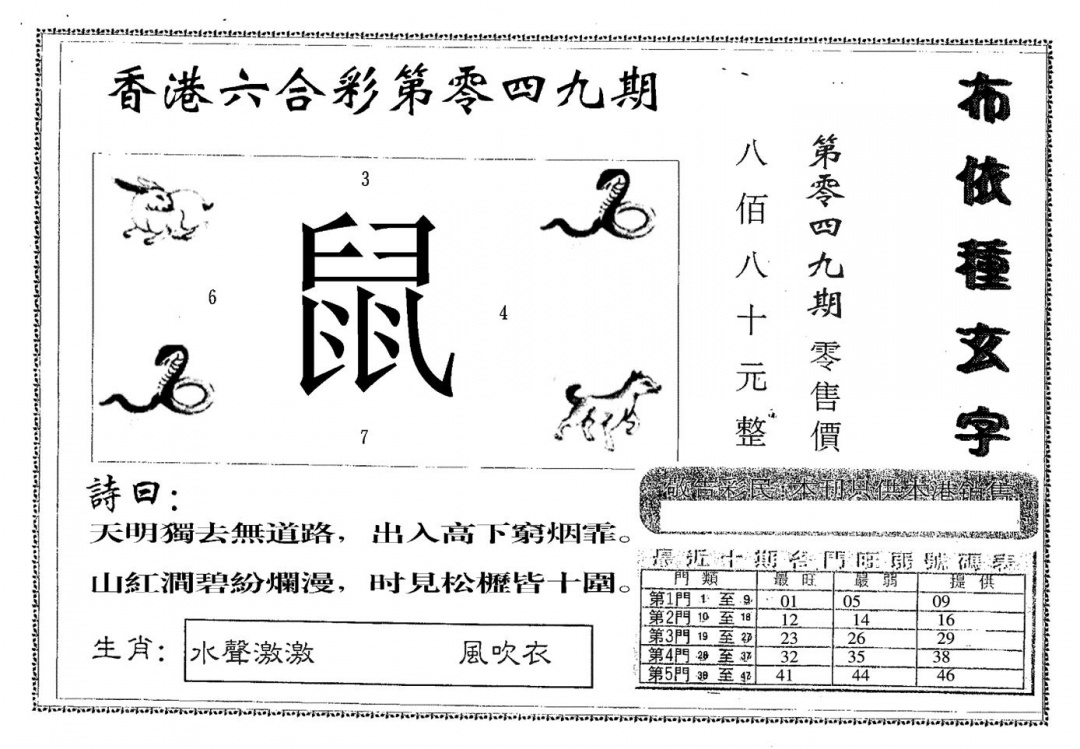 香港六合彩第零四九期
布依種玄字
第零四九期零售價
八佰八十元整
3
鼠
6
4
7
詩曰：
天明獨去無道路，出入高下窮烟霏。
山紅澗碧紛爛漫，时見松櫪皆十圍。
生肖：水聲激激 風吹衣
敬告彩民:本刊只供本港銷售
最近十期各門旺弱號碼表
門類 最旺 最弱 提供
第1門 1 至 9 01 05 09
第2門 10 至 18 12 14 16
第3門 19 至 27 23 26 29
第4門 28 至 37 32 35 38
第5門 38 至 47 41 44 46